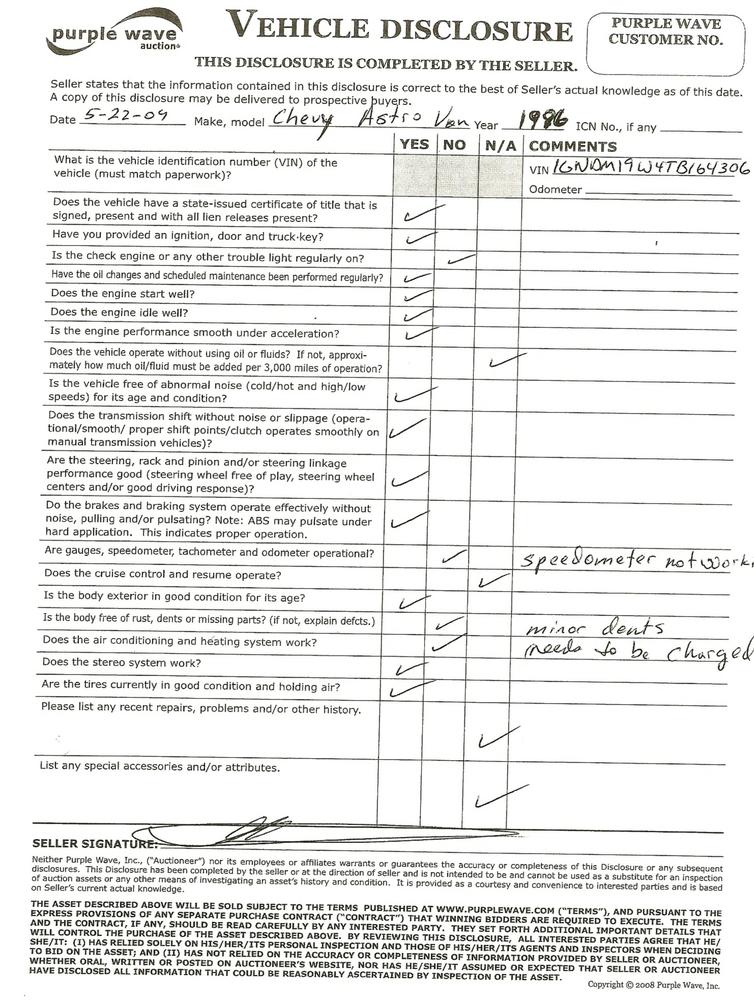 purple wave
auction
VEHICLE DISCLOSURE
PURPLE WAVE
CUSTOMER NO.
THIS DISCLOSURE IS COMPLETED BY THE SELLER.
Seller states that the information contained in this disclosure is correct to the best of Seller's actual knowledge as of this date.
A copy of this disclosure may be delivered to prospective buyers.
Date 5-22-09 Make, model Chevy Astro Van Year 1996 ICN No., if any
YES NO N/A COMMENTS
What is the vehicle identification number (VIN) of the
vehicle (must match paperwork)?
VIN 1GNDM19W4TB164306
Odometer
Does the vehicle have a state-issued certificate of title that is
signed, present and with all lien releases present?
Have you provided an ignition, door and truck-key?
Is the check engine or any other trouble light regularly on?
Have the oil changes and scheduled maintenance been performed regularly?
Does the engine start well?
Does the engine idle well?
Is the engine performance smooth under acceleration?
Does the vehicle operate without using oil or fluids? If not, approxi-
mately how much oil/fluid must be added per 3,000 miles of operation?
Is the vehicle free of abnormal noise (cold/hot and high/low
speeds) for its age and condition?
Does the transmission shift without noise or slippage (opera-
tional/smooth/ proper shift points/clutch operates smoothly on
manual transmission vehicles)?
Are the steering, rack and pinion and/or steering linkage
performance good (steering wheel free of play, steering wheel
centers and/or good driving response)?
Do the brakes and braking system operate effectively without
noise, pulling and/or pulsating? Note: ABS may pulsate under
hard application. This indicates proper operation.
Are gauges, speedometer, tachometer and odometer operational? speedometer not work.
Does the cruise control and resume operate?
Is the body exterior in good condition for its age?
Is the body free of rust, dents or missing parts? (if not, explain defcts.) minor dents
Does the air conditioning and heating system work? needs to be charged
Does the stereo system work?
Are the tires currently in good condition and holding air?
Please list any recent repairs, problems and/or other history.
List any special accessories and/or attributes.
SELLER SIGNATURE:
Neither Purple Wave, Inc., ("Auctioneer") nor its employees or affiliates warrants or guarantees the accuracy or completeness of this Disclosure or any subsequent
disclosures. This Disclosure has been completed by the seller or at the direction of seller and is not intended to be and cannot be used as a substitute for an inspection
of auction assets or any other means of investigating an asset's history and condition. It is provided as a courtesy and convenience to interested parties and is based
on Seller's current actual knowledge.
THE ASSET DESCRIBED ABOVE WILL BE SOLD SUBJECT TO THE TERMS PUBLISHED AT WWW.PURPLEWAVE.COM ("TERMS"), AND PURSUANT TO THE
EXPRESS PROVISIONS OF ANY SEPARATE PURCHASE CONTRACT ("CONTRACT") THAT WINNING BIDDERS ARE REQUIRED TO EXECUTE. THE TERMS
AND THE CONTRACT, IF ANY, SHOULD BE READ CAREFULLY BY ANY INTERESTED PARTY. THEY SET FORTH ADDITIONAL IMPORTANT DETAILS THAT
WILL CONTROL THE PURCHASE OF THE ASSET DESCRIBED ABOVE. BY REVIEWING THIS DISCLOSURE, ALL INTERESTED PARTIES AGREE THAT HE/
SHE/IT: (I) HAS RELIED SOLELY ON HIS/HER/ITS PERSONAL INSPECTION AND THOSE OF HIS/HER/ITS AGENTS AND INSPECTORS WHEN DECIDING
TO BID ON THE ASSET; AND (II) HAS NOT RELIED ON THE ACCURACY OR COMPLETENESS OF INFORMATION PROVIDED BY SELLER OR AUCTIONEER,
WHETHER ORAL, WRITTEN OR POSTED ON AUCTIONEER'S WEBSITE, NOR HAS HE/SHE/IT ASSUMED OR EXPECTED THAT SELLER OR AUCTIONEER
HAVE DISCLOSED ALL INFORMATION THAT COULD BE REASONABLY ASCERTAINED BY INSPECTION OF THE ASSET.
Copyright © 2008 Purple Wave, Inc.